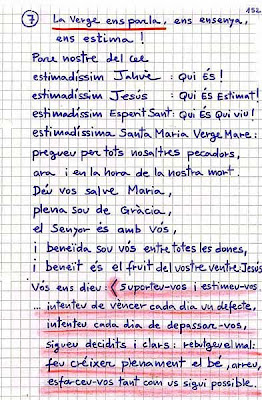 152
7 La Verge ens parla, ens ensenya,
ens estima!
Pare nostre del cel
estimadíssim Jahvè : Qui És!
estimadíssim Jesús : Qui És Estimat!
estimadíssim Esperit Sant: Qui És Qui viu!
estimadíssima Santa Maria Verge Mare:
pregueu per tots nosaltres pecadors,
ara i en la hora de la nostra mort.
Déu vos salve Maria,
plena sou de Gràcia,
el Senyor és amb vós,
i beneïda sou vós entre totes les dones,
i beneït és el fruit del vostre ventre: Jesús
Vós ens dieu: < Suporteu-vos i estimeu-vos
... intenteu de vèncer cada dia un defecte,
intenteu cada dia de depassar-vos,
sigueu decidits i clars: rebutgeu el mal:
feu créixer plenament el bé, arreu,
esforceu-vos tant com us sigui possible.